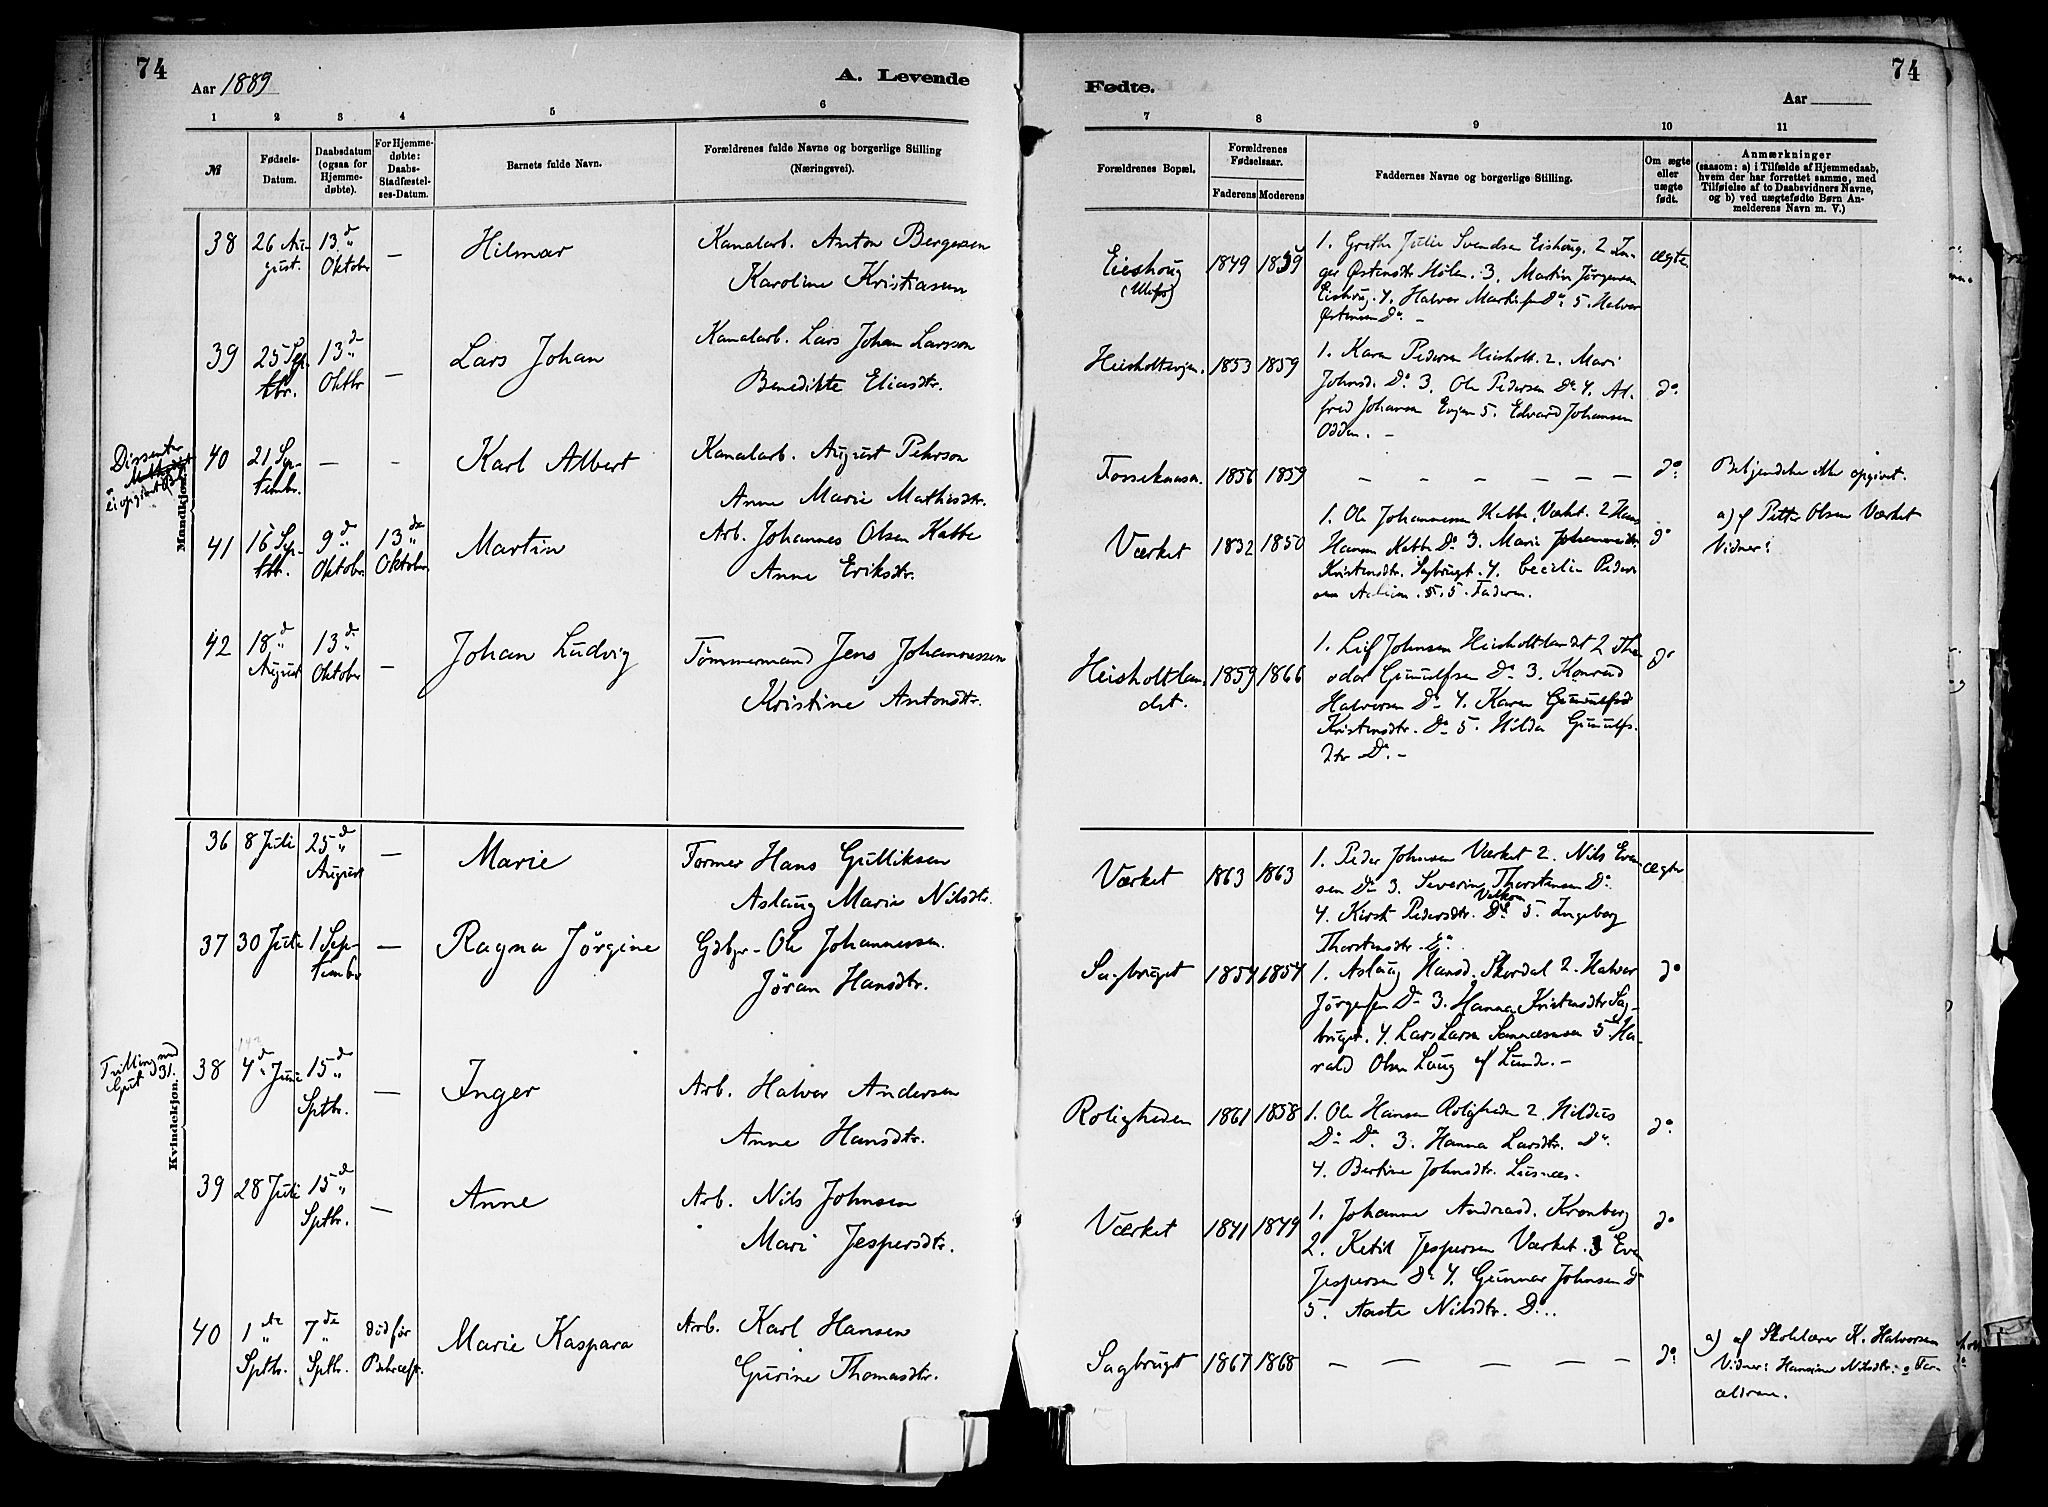 74
Aar 1889
A. Levende
1 2 3 4 5 6
№
Fødsels-
Datum.
Daabsdatum
(ogsaa for
Hjemme-
døbte).
For Hjemme-
døbte:
Daabs-
Stadfæstel-
ses-Datum.
Barnets fulde Navn.
Forældrenes fulde Navne og borgerlige Stilling
(Næringsvei).
Mandkjøn.
38 26 Au- 13de — Hilmar Kanalarb. Anton Bergersen
gust. Oktober Karoline
39 25 Sep- 13de — Lars Johan Kanalarb. Lars Johan Larsson
tbr. Oktbr Benedikte Eliasdtr.
Dissenter
ei opgivet
40 21 Sep- — — Karl Albert Kanalarb. August Pehrson
tembr. Anne Marie Mathisdtr.
41 16 Sep- 9de 13de Martin Arb. Johannes Olsen Kabbe
tbr. Oktober Oktober. Anne Eriksdtr.
42 18de 13de — Johan Ludvig Tømmermand Jens Johannessen
August Oktober Kristine Antonsdtr.
Kvindekjøn.
36 8 Juli 25de — Marie Former Hans Gulliksen
August Aslaug Marie Nilsdtr.
37 30 Juli 1 Sep- — Ragna Jørgine Gdbgr- Ole Johannessen.
tember Jøran Hansdtr.
Tvilling med
Gut 31.
38 4de Juni 15de — Inger Arb. Halvor Andersen
Sptbr. Anne Hansdtr.
39 28 Juli 15de — Anne Arb. Nils Johnsen
Sptbr. Mari Jespersdtr.
40 1ste 7de død før Marie Kaspara Arb. Karl Hansen
Sptbr. Sptbr. Gurine Thomasdtr.
74
Fødte.
Aar
7 8 9 10 11
Forældrenes Bopæl.
Forældrenes
Fødselsaar.
Faderens Moderens
Faddernes Navne og borgerlige Stilling.
Om ægte
eller
uægte
født.
Anmærkninger
(saasom: a) i Tilfælde af Hjemmedaab,
hvem der har forrettet samme, med
Tilføielse af to Daabsvidners Navne,
og b) ved uægtefødte Børn An-
melderens Navn m. V.)
Eieshoug 1849 1859 1. Grethe Julie Svendsen Eishoug. 2 In- ægte.
(Ulefos) ger Østensdtr Hølen. 3. Martin Jørgensen
Eishoug. 4. Halvor Do. 5. Halvor
Østensen Do. –
1853 1859 1. Karen Pedersen Heisholt. 2. Mari
Johnsd. Do 3. Ole Pedersen Do 4. Al- do
fred Johansen Eugen 5. Edvard Johansen
Odden. –
1856 1859 — — — — — — do. opgivet.
1. Ole Johannessen Kabbe, Værket. 2 Hans a) af Petter Olsen Værket
Værket 1832 1850 Hansen Kabbe Do 3. Marie do Vidner:
Kristensdtr. Sagbrugt. 4. Cecilie Peders
5. Faderen.
Heisholtlan- 1859 1866 1. Leif Johnsen Heisholtlandet 2 The- do
det. odor Gunulfsen Do 3. Konrad
Halvorsen Do 4. Karen
Kristensdtr. Do 5. Hilda Gunulfs-
dtr Do. –
Værket 1863 1863 1. Peder Johnsen Værket 2. Nils Even- ægte
sen Do 3. Severin Thorstensen Do.
4. Kirsti Pedersdtr. Do 5. Ingeborg
Thorstensdtr. Do
Sagbruget 1854 1854 1. Aslaug Hansd. Skardal 2. Halvor do
Jørgensen Do 3. Hanna Kristensdtr Sag-
bruget. 4. Lars Larsen 5 Ha-
rald Olsen Laug af Lunde. –
Roligheden 1861 1858 1. Ole Hansen Roligheden 2. Hildus do.
Do Do. 3. Hanna Larsdtr. Do.
4. Bertine Johnsdtr.
Værket 1841 1849 1. Johanne Andreasd. Kronberg do
2. Ketil Jespersen Værket. 3 Even
Jespersen Do 4. Gunnar Johnsen Do
5. Aaste Nilsdtr. Do..
Sagbruget 1867 1868 — — — — — do. a) af Skolelærer K. Halvorsen
Vidner: Hansine Nilsdtr. og For-
ældrene.